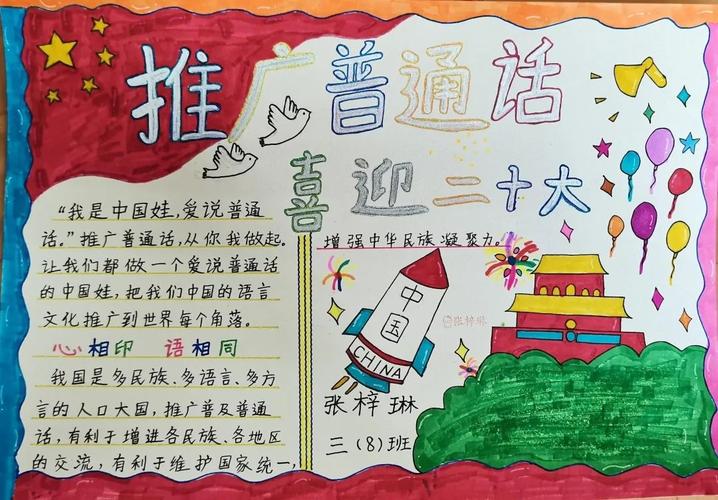 推广普通话
喜迎二十大
“我是中国娃，爱说普通
话。”推广普通话，从你我做起。
让我们都做一个爱说普通话
的中国娃，把我们中国的语言
文化推广到世界每个角落。
心相印 语相同
我国是多民族、多语言、多方
言的人口大国，推广普及普通
话，有利于增进各民族、各地区
的交流，有利于维护国家统一，
增强中华民族凝聚力。
中国
CHINA
张梓琳
张梓琳
三（8）班